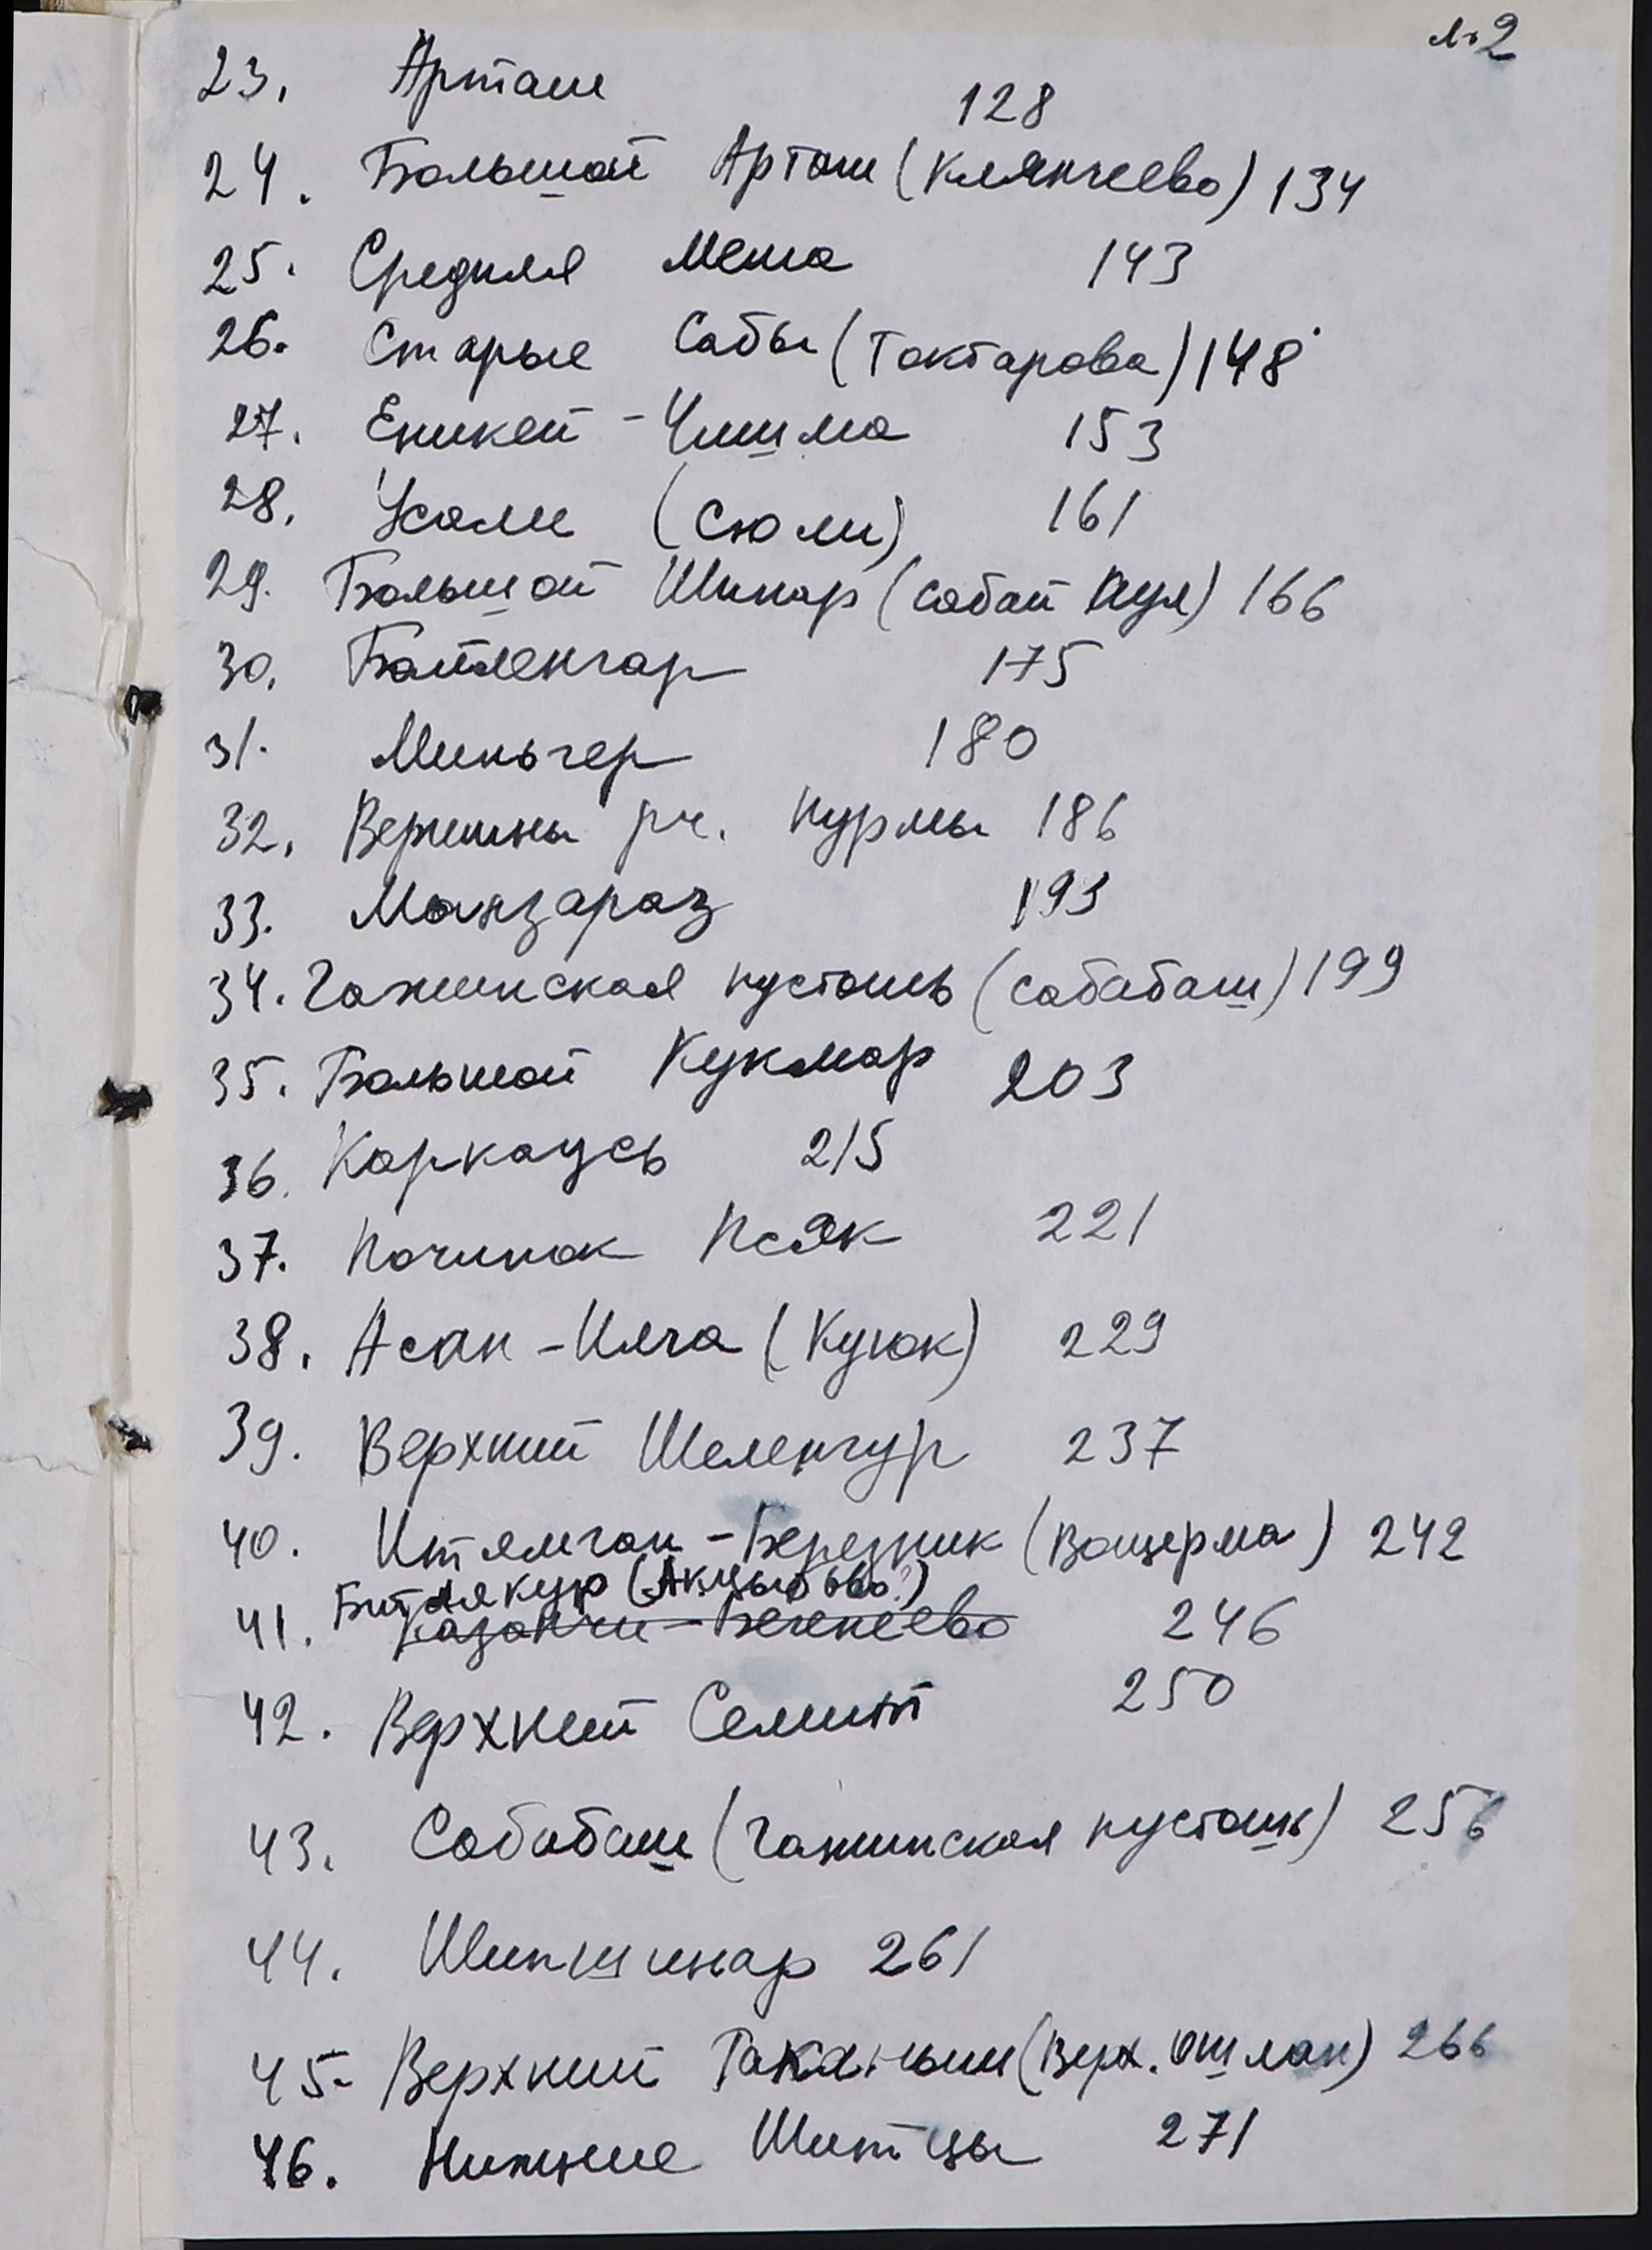 л.2
23. Арташ 128
24. Большой Арташ (Клянчеево) 134
25. Средняя Меша 143
26. Старые Сабы (Токтарова) 148
27. Еникей-Чишма 153
28. Усали (Сюли) 161
29. Большой Шинар (Сабай Аул) 166
30. Байлянгар 175
31. Миньгер 180
32. Вершины рч. Нурмы 186
33. Манзараз 193
34. Гажинская пустошь (Сабабаш) 199
35. Большой Кукмар 203
36. Каркаусь 215
37. Починок Псяк 221
38. Асан-Илга (Куюк) 229
39. Верхний Шеленгур 237
40. Итямган-Березник (Воцерма) 242
Битлякур (Акцыбово?)
41. Казанчи-Бекнеево 246
42. Верхний Семит 250
43. Сабабаш (Гажинская пустошь) 256
44. Шикшинар 261
45. Верхний Таканыш (Верх. Ошлан) 266
46. Нижние Шитцы 271